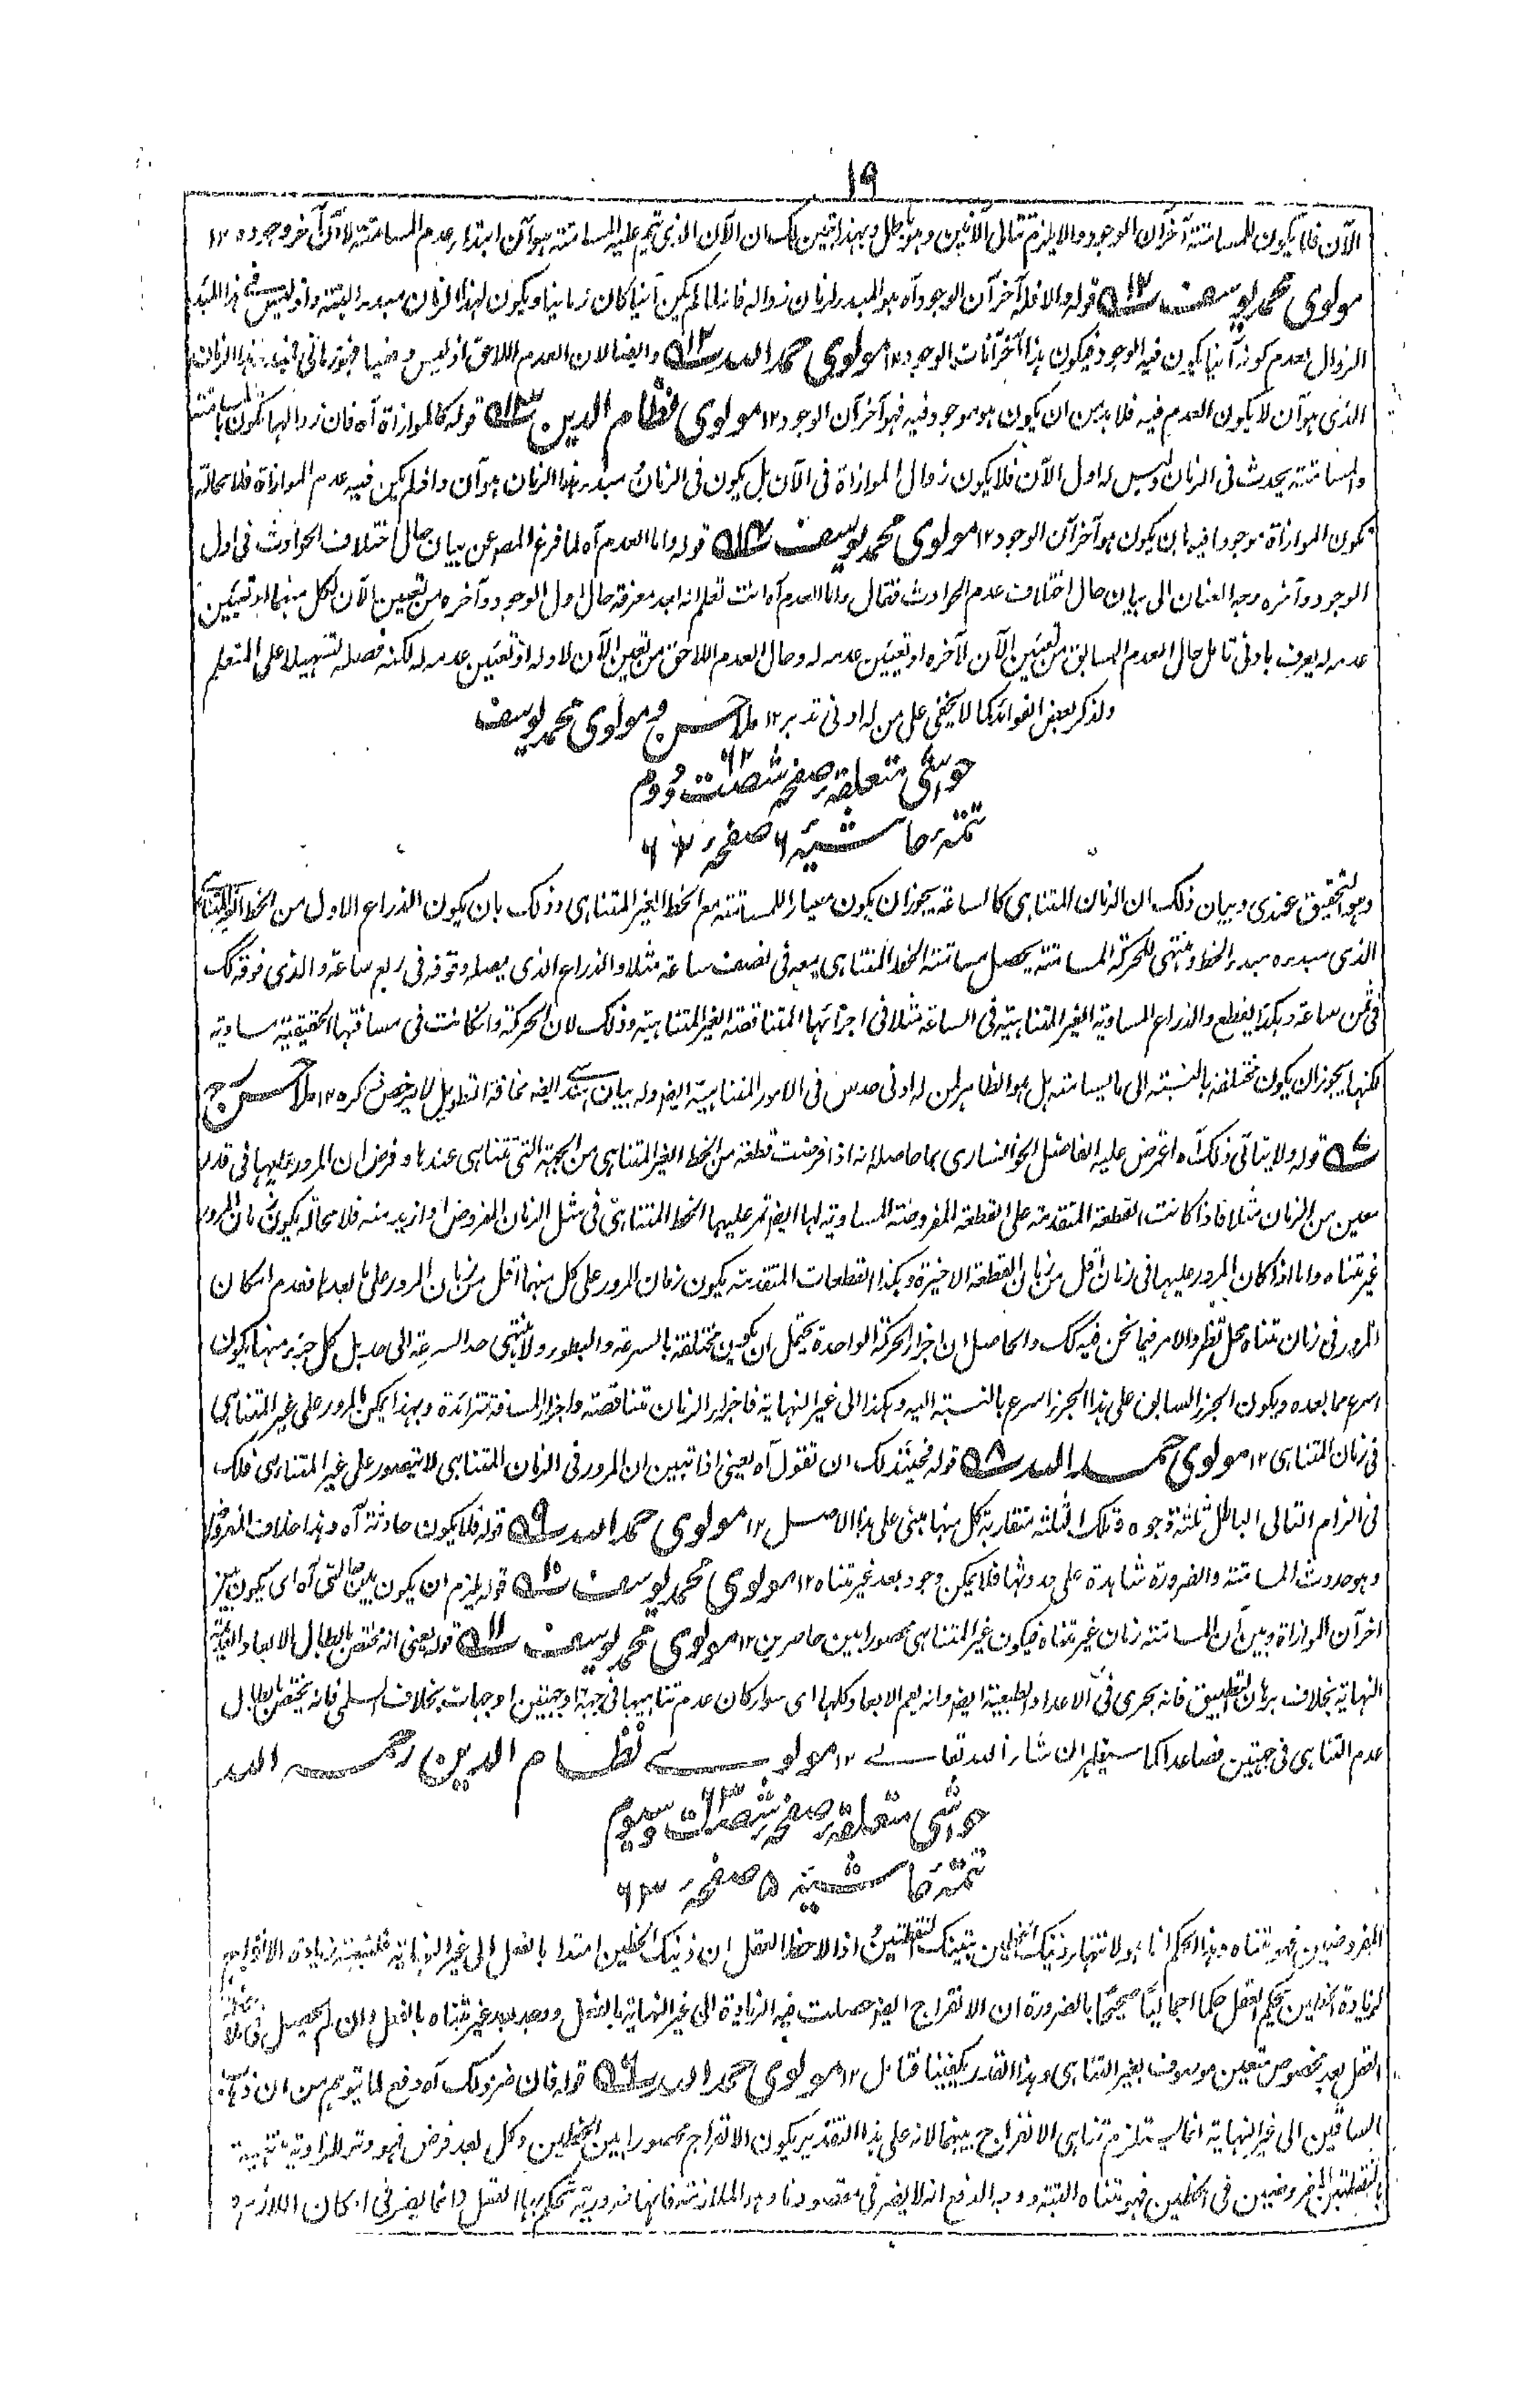 ١٩
الآن فلا يكون للمسامتة آخر آن الوجود والا يلزم تتالى الآنين وهو باطل وبهذا تبين لك ان الآن الذى تم عليه المسامتة هو آن ابتداء عدم المسامتة لا آن آخر وجوده ١٢
مولوى محمد يوسف ١٢ قوله والا فله آخر آن الوجود آه هو المبدء لزمان زواله فانه لما لم يكن آنيا كان زمانيا ويكون لهذا الزمان مبدء البتة واذ ليس فى هذا المبدء
الزوال لعدم كونه آنيا يكون فيه الوجود فيكون هذا آخر آنات الوجود ١٢ مولوى حمد الله ١٣ وايضا لان العدم اللاحق اذ ليس دفعيا فهو زمانى هذا الزمان
الذى هو آن لا يكون العدم فيه فلا بد من ان يكون هو موجود فيه فهو آخر آن الوجود ١٢ مولوى نظام الدين ١٣ قوله كالموازاة آه فان زوالها تكون بالمسامتة
والمسامتة يحدث فى الزمان وليس له اول الآن فلا يكون زوال الموازاة فى الآن بل يكون فى الزمان ومبدء هذا الزمان هو آن واذ لم يكن فيه عدم الموازاة فلا محالة
تكون الموازاة موجودا فيه بان يكون هو آخر آن الوجود ١٢ مولوى محمد يوسف ١٤ قوله واما العدم آه لما فرغ المصر عن بيان حال اختلاف الحوادث فى اول
الوجود وآخره وجه العنان الى بيان حال اختلاف عدم الحوادث فقال واما العدم آه انت تعلم انه بعد معرفة حال اول الوجود وآخره من تعيين الآن لكل منهما او تعيين
عدمه له يعرف بادنى تامل حال العدم السابق من تعيين الآن لآخره او تعيين عدمه له وحال العدم اللاحق من تعيين الآن لاوله او تعيين عدمه له لكنه فصله تسهيلا على المتعلم
ولذكر بعض الفوائد كما لا يخفى على من له ادنى تدبر ١٢ ملا حسن و مولوى محمد يوسف
حواشى متعلقه صفحه شصت و دوم ٦٢
تتمه حاشيه ٦ صفحه ٦٢
وهو التحقيق عندى وبيان ذلك ان الزمان المتناهى كالساعة يجوز ان يكون معيارا للمسامتة مع الخط الغير المتناهى وذلك بان يكون الذراع الاول من الخط الغير المتناهى
الذى مبدءه مبدء الخط ومنتهى للحركة المسامتة يحصل مسامتة الخط المتناهى معه فى نصف ساعة مثلا والذراع الذى يصله وفوقه فى ربع ساعة والذى فوقه كك
فى ثمن ساعة وهكذا يقطع والذراع المساوية الغير المتناهية فى الساعة مثلا فى اجزائها المتناقصة الغير المتناهية وذلك لان الحركة وان كانت فى مسافتها الحقيقية مساوية
لكنها يجوز ان يكون مختلفة بالنسبة الى ما يسامته بل هو الظاهر لمن له ادنى حدس فى الامور المتناهية ايضا وله بيان هندسى ايضا مخافة التطويل لا يرخص ذكره ١٢ ملا حسن ج
٧ قوله ولا يتأتى ذلك آه اعترض عليه الفاضل الخوانسارى بما حاصله انه اذا فرضت قطعة من الخط الغير المتناهى من الجهة التى تتناهى عندها وفرض ان المرور عليها فى قدر
معين من الزمان مثلا فاذا كانت القطعة المتقدمة على القطعة المفروضة المساوية لها ايضا تمر عليها الخط المتناهى فى مثل الزمان المفروض او ازيد منه فلا محالة يكون زمان المرور
غير متناه واما اذا كان المرور عليها فى زمان اقل من زمان القطعة الاخيرة وهكذا القطعات المتقدمة يكون زمان المرور على كل منهما اقل من زمان المرور على ما بعدها فعدم امكان
المرور فى زمان متناه محل نظر والامر فيما نحن فيه كك والحاصل ان اجزاء الحركة الواحدة يحتمل ان يكون مختلفة بالسرعة والبطوء ولا ينتهى حد السرعة الى حد بل كل جزء منها يكون
اسرع مما بعده ويكون الجزء السابق على هذا الجزء اسرع بالنسبة اليه وهكذا الى غير النهاية فاجزاء الزمان متناقصة واجزاء المسافة متزائدة وبهذا يمكن المرور على غير المتناهى
فى زمان المتناهى ١٢ مولوى حمد الله ٨ قوله فحينئذ لك ان تقول آه يعنى اذا تبين ان المرور فى الزمان المتناهى لا يتصور على غير المتناهى فلك
فى الزام التالى الباطل ثلثة وجوه وتلك الثلثة متقاربة كل منها مبنى على هذا الاصل ١٢ مولوى حمد الله ٩ قوله فلا يكون حادثة آه وهذا خلاف المفروض
وهو حدوث المسامتة والضرورة شاهدة على حدوثها فلا يمكن وجود بعد غير متناه ١٢ مولوى محمد يوسف ١٠ قوله يلزم ان يكون بين التى آه اى يكون بين
آخر آن الموازاة وبين آن المسامتة زمان غير متناه فيكون غير المتناهى محصورا بين حاصرين ١٢ مولوى محمد يوسف ١١ قوله يعنى انه مختص بابطال الابعاد الغير
النهاية بخلاف برهان التطبيق فانه يجرى فى الاعداد الطبيعية ايضا وانه يعم الابعاد كلها اى سواء كان عدم تناهيها فى جهة او جهتين او جهات بخلاف السلمى فانه يختص بابطال
عدم التناهى فى جهتين فصاعدا كما سيظهر ان شاء الله تعالى ١٢ مولوى نظام الدين رحمه الله
حواشى متعلقه صفحه شصت و سيوم ٦٣
تتمه حاشيه ٥ صفحه ٦٣
المفروضين فهو متناه وهذا الحكم انما هو لانتهاء ذينك الخطين بتينك النقطتين اذا لاحظ العقل ان ذينك الخطين امتدا بالفعل الى غير النهاية زيادة الانفراج
لزيادة الخطين يحكم العقل حكما اجماليا صحيحا بالضرورة ان الانفراج ايضا حصلت فيه الزيادة الى غير النهاية بالفعل ووجد بعد غير متناه بالفعل وان لم يحصل فى
العقل بعد مخصوص متعين موصوف بغير التناهى وهذا القدر يكفينا فتامل ١٢ مولوى حمد الله ٦ قوله فان ضرورتك آه دفع لما يتوهم من ان ذهاب
الساقين الى غير النهاية انما يستلزم تناهى الانفراج بينهما لانه على هذا التقدير يكون الانفراج محصورا بين الخطين وكل بعد فرض فهو وتر للزاوية
بالنقطتين المفروضين فى الخطين فهو متناه البتة ووجه الدفع انه لا يضر فى مقصودنا وهو الملازمة فانها ضرورية يحكم بها العقل وانما يضر فى امكان اللازم و